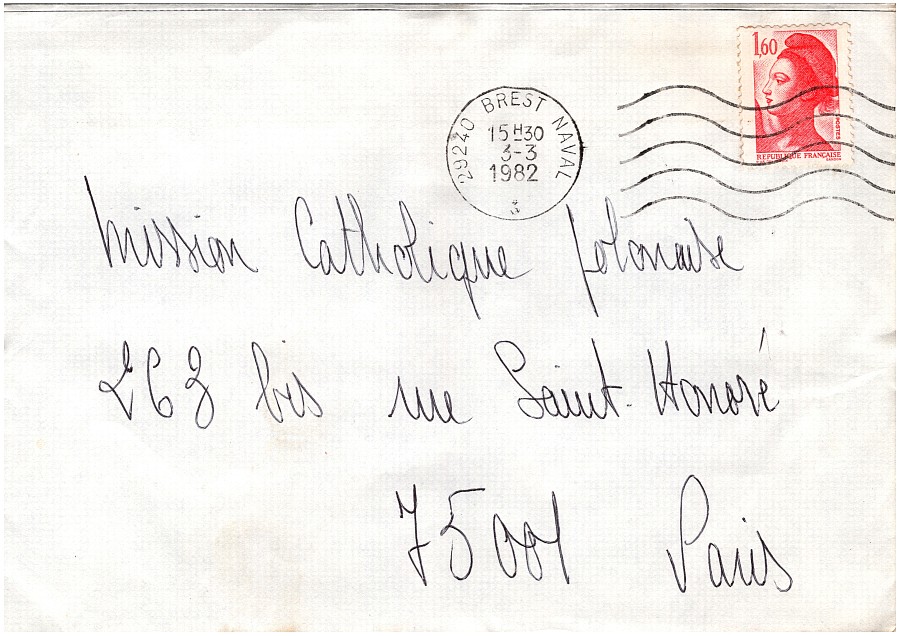 1,60
POSTES
REPUBLIQUE FRANÇAISE
GANDON
29240 BREST NAVAL
15H30
3-3
1982
Mission Catholique polonaise
263 bis rue Saint-Honoré
75001 Paris